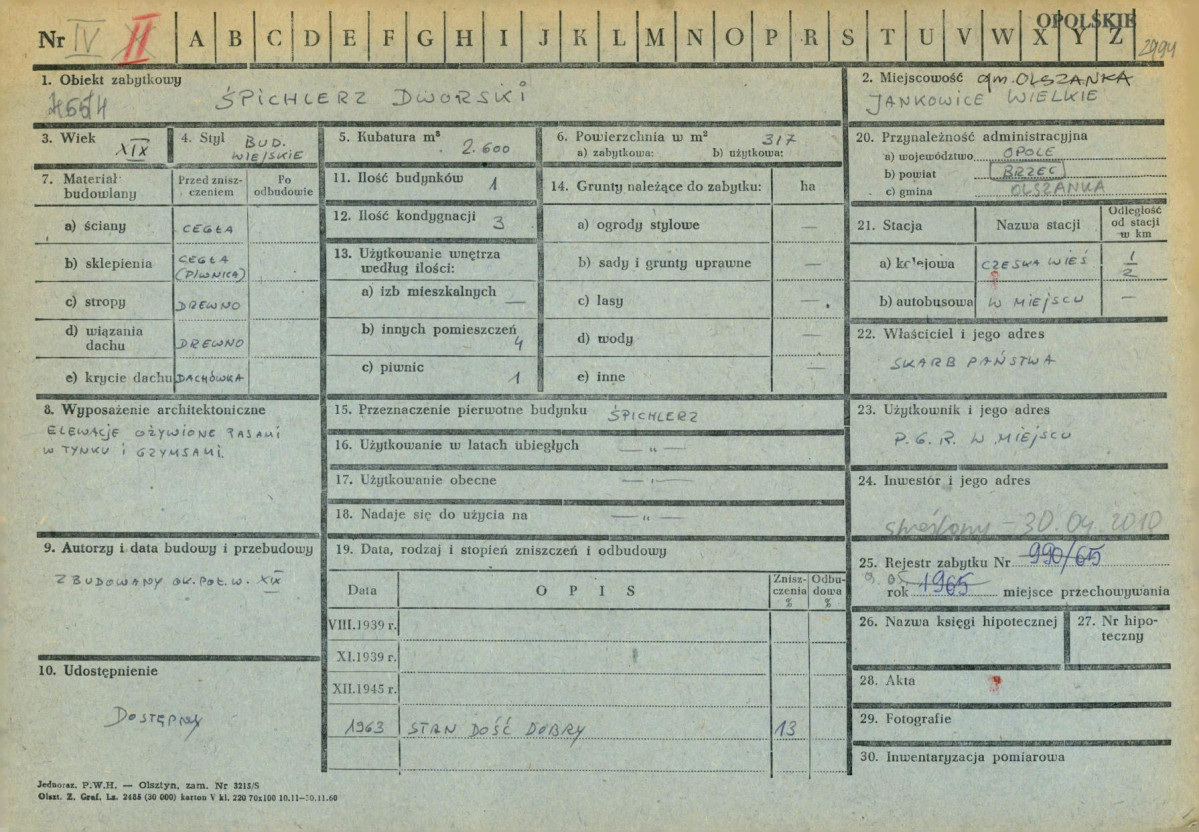 Nr IV II A B C D E F G H I J K L M N O P R S T U V W X Y Z OPOLSKIE
2994
1. Obiekt zabytkowy
ŚPICHLERZ DWORSKI
2. Miejscowość gm. OLSZANKA
JANKOWICE WIELKIE
3. Wiek XIX
4. Styl BUD. WIEJSKIE
5. Kubatura m³ 2.600
6. Powierzchnia w m² 317
a) zabytkowa: b) użytkowa:
20. Przynależność administracyjna
a) województwo OPOLE
b) powiat BRZEG
c) gmina OLSZANKA
7. Materiał budowlany
Przed zniszczeniem
Po odbudowie
a) ściany CEGŁA
b) sklepienia CEGŁA (PIWNICA)
c) stropy DREWNO
d) wiązania dachu DREWNO
e) krycie dachu DACHÓWKA
11. Ilość budynków 1
12. Ilość kondygnacji 3
13. Użytkowanie wnętrza według ilości:
a) izb mieszkalnych —
b) innych pomieszczeń 4
c) piwnic 1
14. Grunty należące do zabytku: ha
a) ogrody stylowe —
b) sady i grunty uprawne —
c) lasy —
d) wody —
e) inne —
21. Stacja Nazwa stacji Odległość od stacji w km
a) kolejowa CZESKA WIEŚ 1/2
b) autobusowa W MIEJSCU —
22. Właściciel i jego adres
SKARB PAŃSTWA
8. Wyposażenie architektoniczne
ELEWACJE OŻYWIONE PASAMI
W TYNKU I GZYMSAMI.
15. Przeznaczenie pierwotne budynku ŚPICHLERZ
16. Użytkowanie w latach ubiegłych — „ —
17. Użytkowanie obecne — „ —
18. Nadaje się do użycia na — „ —
23. Użytkownik i jego adres
P. G. R. W MIEJSCU
24. Inwestor i jego adres
skreślony – 30.04.2010
9. Autorzy i data budowy i przebudowy
ZBUDOWANY OK. POŁ. W. XIX
19. Data, rodzaj i stopień zniszczeń i odbudowy
Data O P I S Zniszczenia % Odbudowa %
VIII.1939 r.
XI.1939 r.
XII.1945 r.
1963 STAN DOŚĆ DOBRY 13
25. Rejestr zabytku Nr 990/65
9. 05. rok 1965 miejsce przechowywania
26. Nazwa księgi hipotecznej
27. Nr hipoteczny
10. Udostępnienie
DOSTĘPNY
28. Akta
29. Fotografie
30. Inwentaryzacja pomiarowa
Jednoraz. P.W.H. — Olsztyn, zam. Nr 3215/S
Olszt. Z. Graf. Lz. 2485 (30 000) karton V kl. 220 70x100 10.11—30.11.60